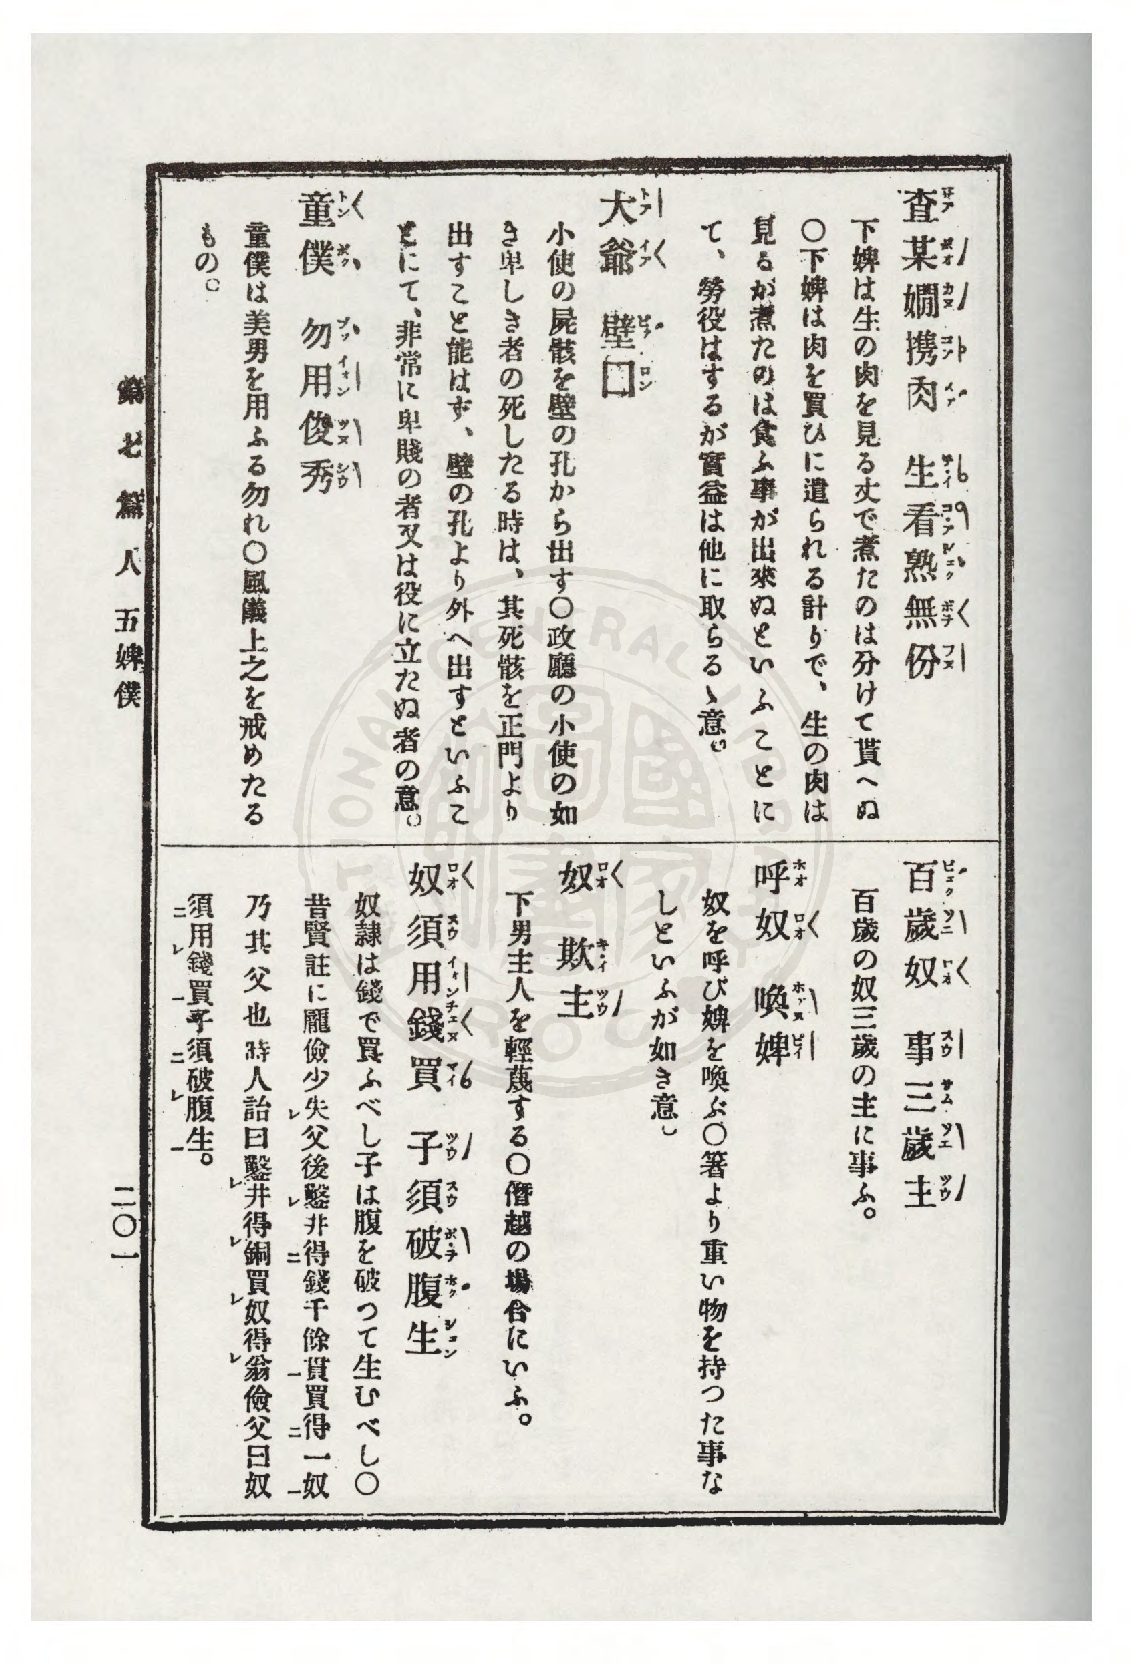 査某嫺携肉　生看熟無份
下婢は生の肉を見る丈で煮たのは分けて貰へぬ
〇下婢は肉を買ひに遣られる計りで、生の肉は
見るが煮たのは食ふ事が出來ぬといふことに
て、勞役はするが實益は他に取らるゝ意。
大爺　壁口
小使の屍骸を壁の孔から出す〇政廳の小使の如
き卑しき者の死したる時は、其死骸を正門より
出すこと能はず、壁の孔より外へ出すといふこ
とにて、非常に卑賤の者又は役に立たぬ者の意。
童僕　勿用俊秀
童僕は美男を用ふる勿れ〇風儀上之を戒めたる
もの。
百歲奴　事三歲主
百歲の奴三歲の主に事ふ。
呼奴　喚婢
奴を呼び婢を喚ぶ〇箸より重い物を持つた事な
しといふが如き意。
奴　欺主
下男主人を輕蔑する〇僭越の場合にいふ。
奴須用錢買　子須破腹生
奴隷は錢で買ふべし子は腹を破つて生むべし〇
昔賢註に龐儉少失父後鑿井得錢千餘貫買得一奴
乃其父也時人詒曰鑿井得銅買奴得翁儉父曰奴
須用錢買子須破腹生。
第七篇　人　五婢僕
二〇一
NATIONAL CENTRAL LIBRARY
R.O.C.